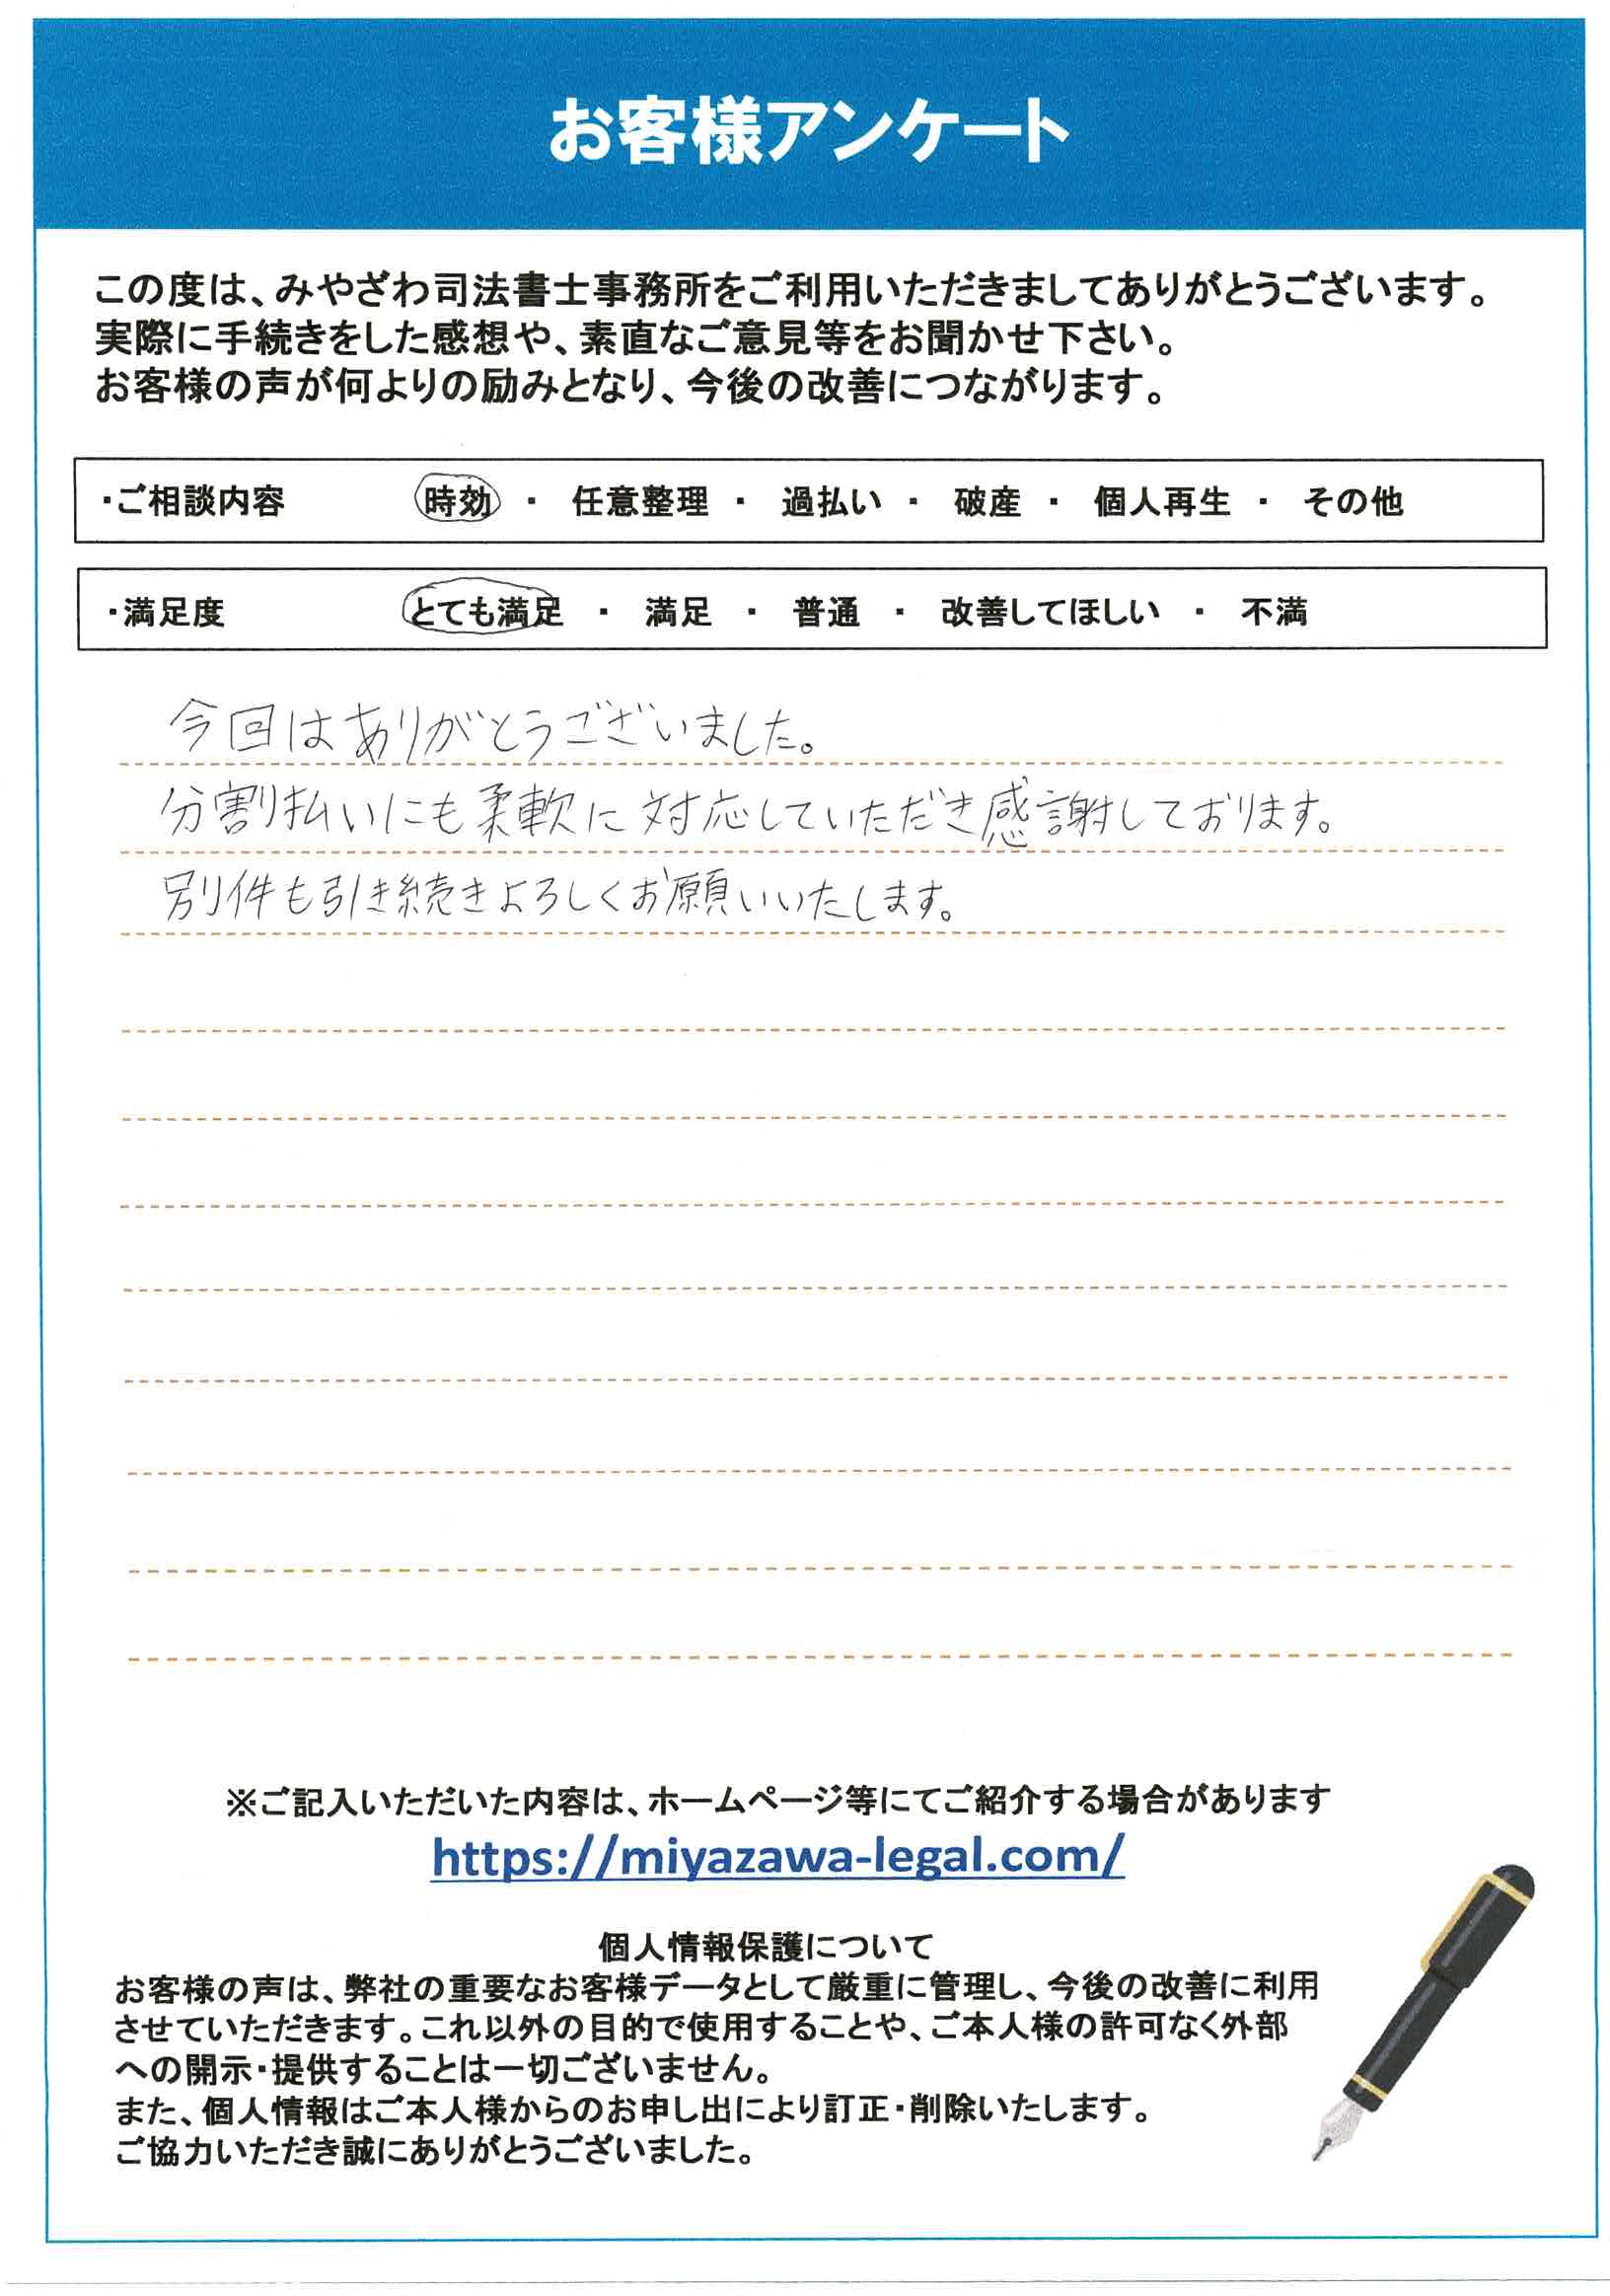 お客様アンケート
この度は、みやざわ司法書士事務所をご利用いただきましてありがとうございます。
実際に手続きをした感想や、素直なご意見等をお聞かせ下さい。
お客様の声が何よりの励みとなり、今後の改善につながります。
・ご相談内容 時効 ・ 任意整理 ・ 過払い ・ 破産 ・ 個人再生 ・ その他
・満足度 とても満足 ・ 満足 ・ 普通 ・ 改善してほしい ・ 不満
今回はありがとうございました。
分割払いにも柔軟に対応していただき感謝しております。
別件も引き続きよろしくお願いいたします。
※ご記入いただいた内容は、ホームページ等にてご紹介する場合があります
https://miyazawa-legal.com/
個人情報保護について
お客様の声は、弊社の重要なお客様データとして厳重に管理し、今後の改善に利用
させていただきます。これ以外の目的で使用することや、ご本人様の許可なく外部
への開示・提供することは一切ございません。
また、個人情報はご本人様からのお申し出により訂正・削除いたします。
ご協力いただき誠にありがとうございました。